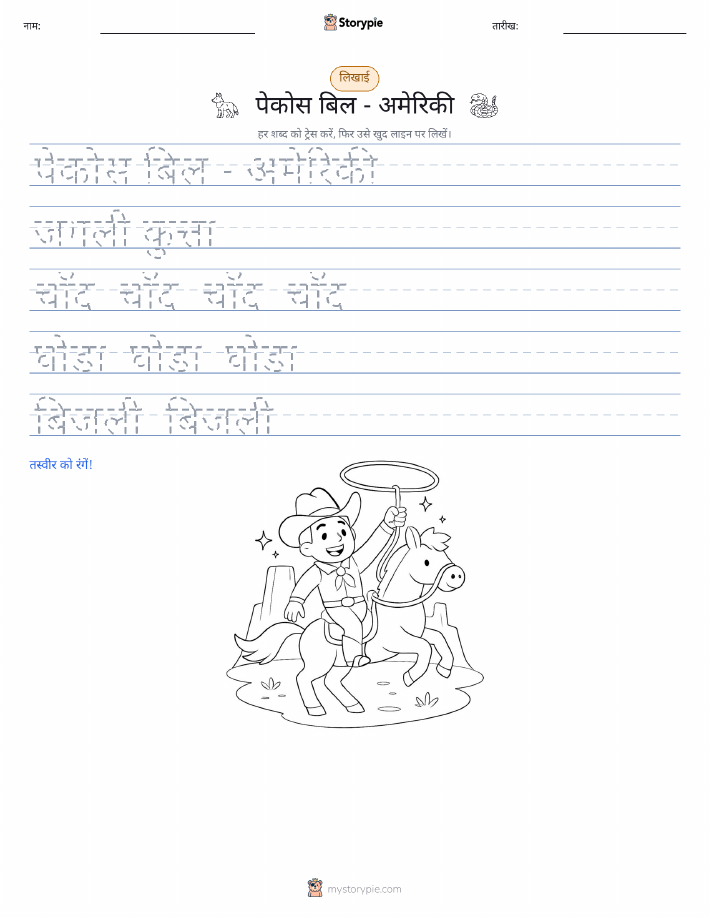 नाम:
Storypie
तारीख:
लिखाई
पेकोस बिल - अमेरिकी
हर शब्द को ट्रेस करें, फिर उसे खुद लाइन पर लिखें।
पेकोस बिल - अमेरिकी
जंगली कुत्ता
चाँद चाँद चाँद चाँद
घोड़ा घोड़ा घोड़ा
बिजली बिजली
तस्वीर को रंगें!
mystorypie.com